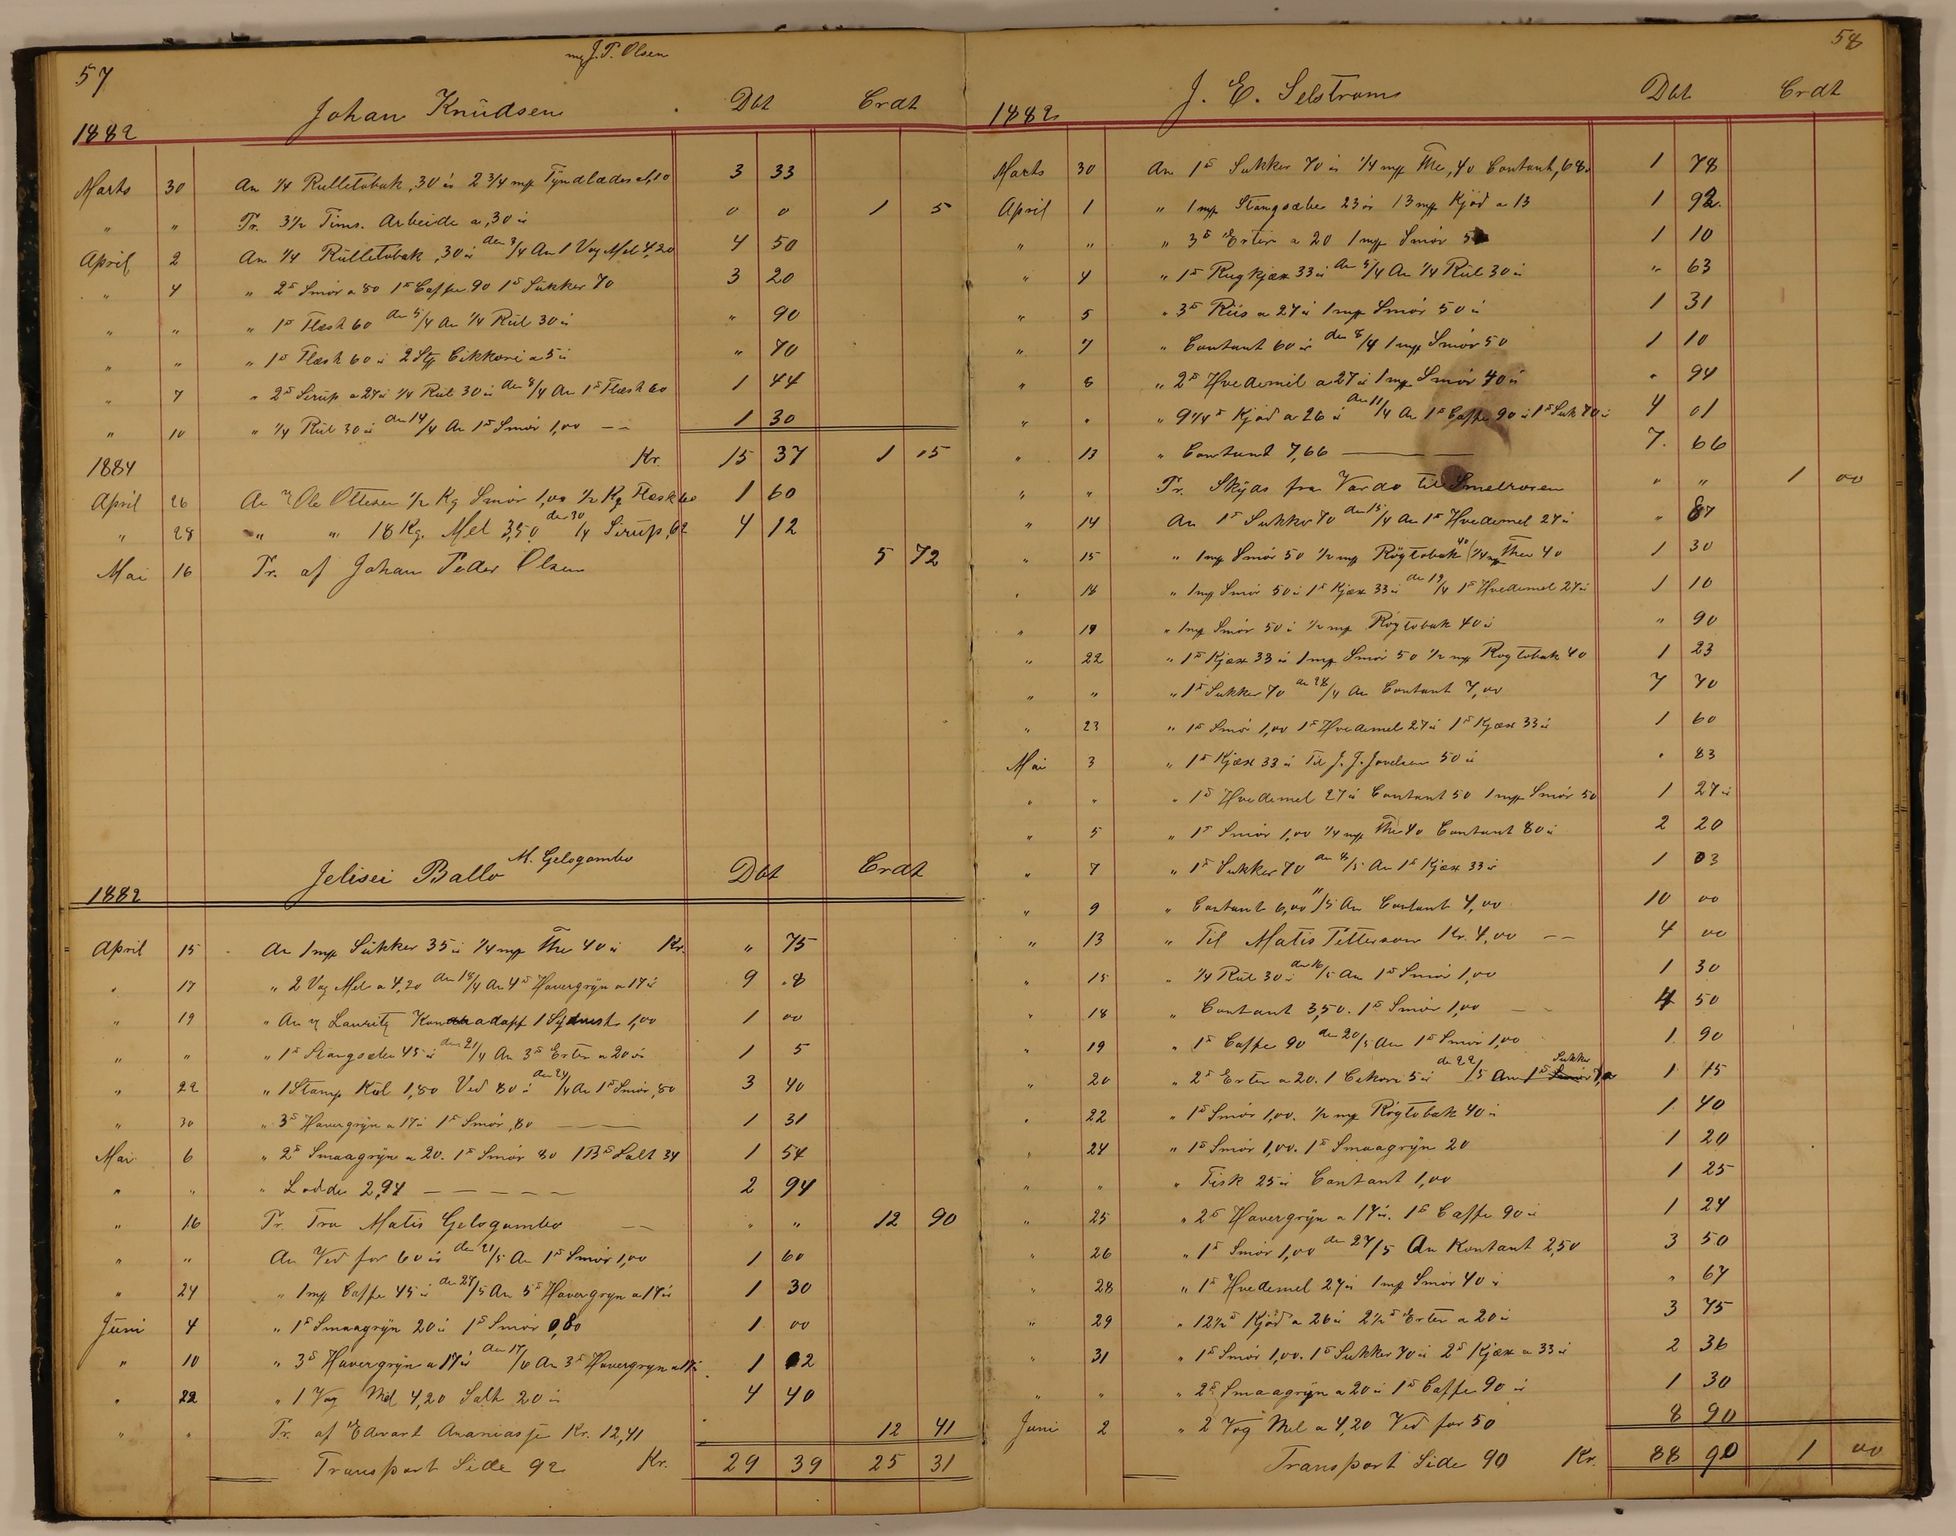 57
m/ J. P. Olsen
Johan Knudsen Dbt Crdt
1882
Marts 30 An 1/4 Rulletobak, 30 ø 2 3/4 mp Tyndlæder a 1,10 3 33
" " Pr. 3 1/2 Tims. Arbeide a ,30 ø 0 0 1 5
April 2 An 1/4 Rulletobak ,30 ø den 3/4 An 1 Vog Mel 4,20 4 50
" 4 " 2 ℔ Smør a 80 1 ℔ Caffe 90 1 ℔ Sukker 70 3 20
" " " 1 ℔ Flæsk 60 den 5/4 An 1/4 Rul 30 ø " 90
" " " 1 ℔ Flæsk 60 ø 2 Stg Cikkori a 5 ø " 70
" 7 " 2 ℔ Sirup a 27 ø 1/4 Rul 30 ø den 8/4 An 1 ℔ Flæsk 60 1 44
" 10 " 1/4 Rul 30 ø den 14/4 An 1 ℔ Smør 1,00 1 30
1884 Kr. 15 37 1 05
April 26 An Ole Ottesen 1/2 Kg Smør 1,00 1/2 Kg Flæsk 60 1 60
" 28 " " 18 Kg. Mel 3,50 den 30/4 Sirup ,62 4 12
Mai 16 Pr. af Johan Peder Olsen 5 72
Jelisei Ballo M. Gelogambo Dbt Crdt
1882
April 15 An 1 mp Sukker 35 ø 1/4 mp The 40 ø Kr. " 75
" 17 " 2 Vog Mel a 4,20 den 18/4 An 4 ℔ Havergryn a 17 ø 9 .8
" 19 " An Lauritz 1,00 1 00
" " " 1 ℔ Stangsæbe 45 ø den 21/4 An 3 ℔ Erter a 20 ø 1 5
" 22 " 1 Stamp Kul 1,80 Ved 80 ø den 24/4 An 1 ℔ Smør ,80 3 40
" 30 " 3 ℔ Havergryn a 17 ø 1 ℔ Smør ,80 1 31
Mai 6 " 2 ℔ Smaagryn a 20. 1 ℔ Smør 80 Salt 34 1 54
" " " Lodde 2,94 2 94
" 16 Pr. Fra Matis Gelogambo " " 12 90
" " An Ved for 60 ø den 21/5 An 1 ℔ Smør 1,00 1 60
" 24 " 1 mp Caffe 45 ø den 27/5 An 5 ℔ Havergryn a 17 ø 1 30
Juni 4 " 1 ℔ Smaagryn 20 ø 1 ℔ Smør 0,80 1 00
" 10 " 3 ℔ Havergryn a 17 ø den 17/6 An 3 ℔ Havergryn a 17 ø 1 02
" 22 " 1 Vog Mel 4,20 Salt 20 ø 4 40
" " Pr. af Edvart Ananiasje Kr. 12,41 12 41
Transport Side 92 Kr. 29 39 25 31
58
1882 J. E. Selstrøm Dbt Crdt
Marts 30 An 1 ℔ Sukker 70 ø 1/4 mp The, 40 Contant, 68 1 78
April 1 " 1 mp Stangsæbe 23 ø 13 mp Kjød a 13 1 92
" " " 3 ℔ Erter a 20 1 mp Smør 50 1 10
" 4 " 1 ℔ Rugkjæx 33 ø den 5/4 An 1/4 Rul 30 ø " 63
" 5 " 3 ℔ Riis a 27 ø 1 mp Smør 50 ø 1 31
" 7 " Contant 60 ø den 8/4 1 mp Smør 50 1 10
" 8 " 2 ℔ Hvedemel a 27 ø 1 mp Smør 40 ø " 94
" " " 9 1/4 ℔ Kjød a 26 ø den 11/4 An 1 ℔ Caffe 90 ø 1 ℔ Suk 70 ø 4 01
" 13 " Contant 7,66 7. 66
" " Pr. Skyds fra Vardø til Smelroren " " 1 00
" 14 An 1 ℔ Sukker 70 den 15/4 An 1 ℔ Hvedemel 27 ø " 87
" 15 " 1 mp Smør 50 1/2 mp Røgtobak 40 1/4 mp The 40 1 30
" 18 " 1 mp Smør 50 ø 1 ℔ Kjæx 33 ø den 19/4 1 ℔ Hvedemel 27 ø 1 10
" 19 " 1 mp Smør 50 ø 1/2 mp Røgtobak 40 ø " 90
" 22 " 1 ℔ Kjæx 33 ø 1 mp Smør 50 1/2 mp Røgtobak 40 1 23
" " " 1 ℔ Sukker 70 den 28/4 An Contant 7,00 7 70
" 23 " 1 ℔ Smør 1,00 1 ℔ Hvedemel 27 ø 1 ℔ Kjæx 33 ø 1 60
Mai 3 " 1 ℔ Kjæx 33 ø Til J. J. 50 ø " 83
" " " 1 ℔ Hvedemel 27 ø Contant 50 1 mp Smør 50 1 27 ø
" 5 " 1 ℔ Smør 1,00 1/4 mp The 40 Contant 80 ø 2 20
" 7 " 1 ℔ Sukker 70 den 8/5 An 1 ℔ Kjæx 33 ø 1 03
" 9 " Contant 6,00 11/5 An Contant 4,00 10 00
" 13 " Til Matis Pettersen Kr. 4,00 4 00
" 15 " 1/4 Rul 30 ø den 16/5 An 1 ℔ Smør 1,00 1 30
" 18 " Contant 3,50. 1 ℔ Smør 1,00 4 50
" 19 " 1 ℔ Caffe 90 den 20/5 An 1 ℔ Smør 1,00 1. 90
" 20 " 2 ℔ Erter a 20. 1 Cikori 5 ø den 22/5 An 1 ℔ Smør Sukker 70 1 15
" 22 " 1 ℔ Smør 1,00. 1/2 mp Røgtobak 40 ø 1. 40
" 24 " 1 ℔ Smør 1,00. 1 ℔ Smaagryn 20 1 20
" " " Fisk 25 ø Contant 1,00 1 25
" 25 " 2 ℔ Havergryn a 17 ø. 1 ℔ Caffe 90 ø 1 24
" 26 " 1 ℔ Smør 1,00 den 27/5 An Kontant 2,50 3 50
" 28 " 1 ℔ Hvedemel 27 ø 1 mp Smør 40 ø " 67
" 29 " 12 1/2 ℔ Kjød a 26 ø 2 1/2 ℔ Erter a 20 ø 3 75
" 31 " 1 ℔ Smør 1,00. 1 ℔ Sukker 70 ø 2 ℔ Kjæx a 33 ø 2 36
" " " 2 ℔ Smaagryn a 20 ø 1 ℔ Caffe 90 ø 1 30
Juni 2 " 2 Vog Mel a 4,20 Ved for 50 8 90
Transport Side 90 Kr. 88 90 1 00